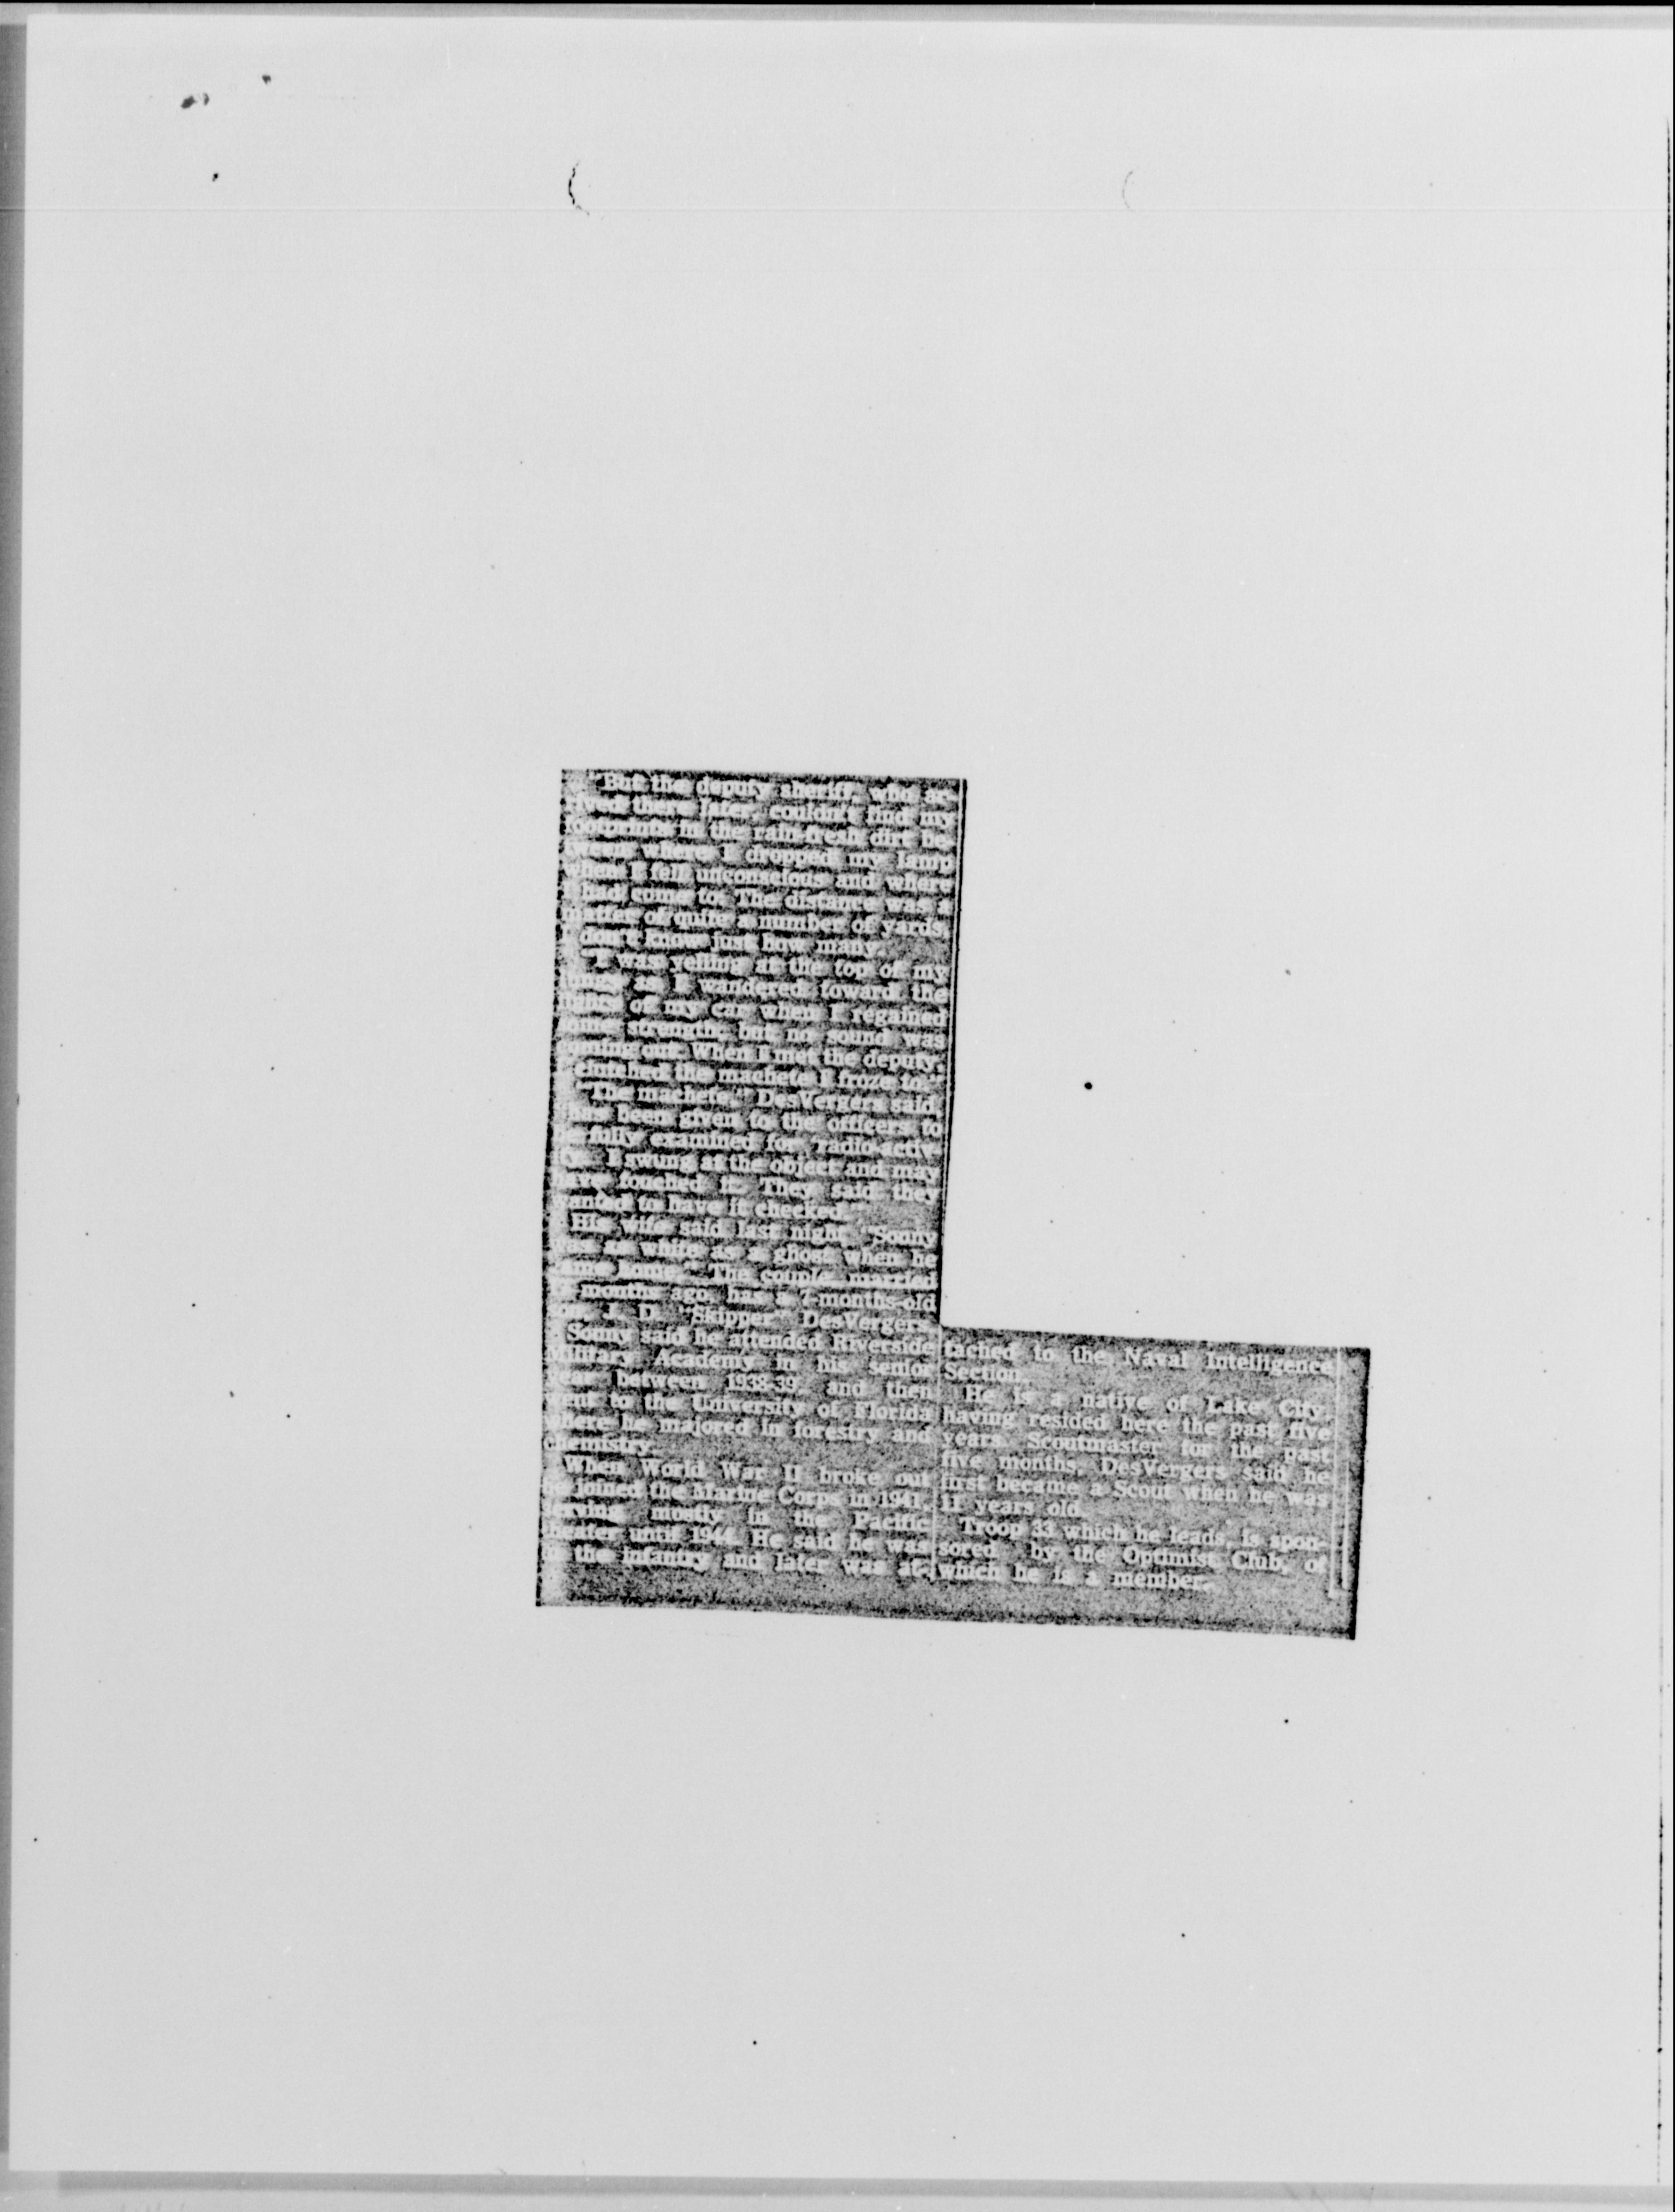 "But the deputy sheriff, who ar-
rived there later, couldn't find my
footprints in the rain-fresh dirt be-
tween where I dropped my lamp
when I fell unconscious and where
I had come to. The distance was a
matter of quite a number of yards,
I don't know just how many.
"I was yelling at the top of my
lungs as I wandered toward the
lights of my car when I regained
some strength but no sound was
coming out. When I met the deputy,
I clutched the machete I froze to."
"The machete," DesVergers said,
"has been given to the officers to
be fully examined for radio-activ-
ity. I swung at the object and may
have touched it. They said they
wanted to have it checked."
His wife said last night, "Sonny
was as white as a ghost when he
came home." The couple, married
months ago, has a 7-months-old
son, J. D. "Skipper" DesVergers.
Sonny said he attended Riverside
Military Academy in his senior
year between 1938-39, and then
went to the University of Florida
where he majored in forestry and
chemistry.
When World War II broke out
he joined the Marine Corps in 1941,
serving mostly in the Pacific
theater until 1944. He said he was
in the infantry and later was at-
tached to the Naval Intelligence
Section.
He is a native of Lake City,
having resided here the past five
years. Scoutmaster for the past
five months, DesVergers said he
first became a Scout when he was
11 years old.
Troop 33 which he leads, is spon-
sored by the Optimist Club, of
which he is a member.